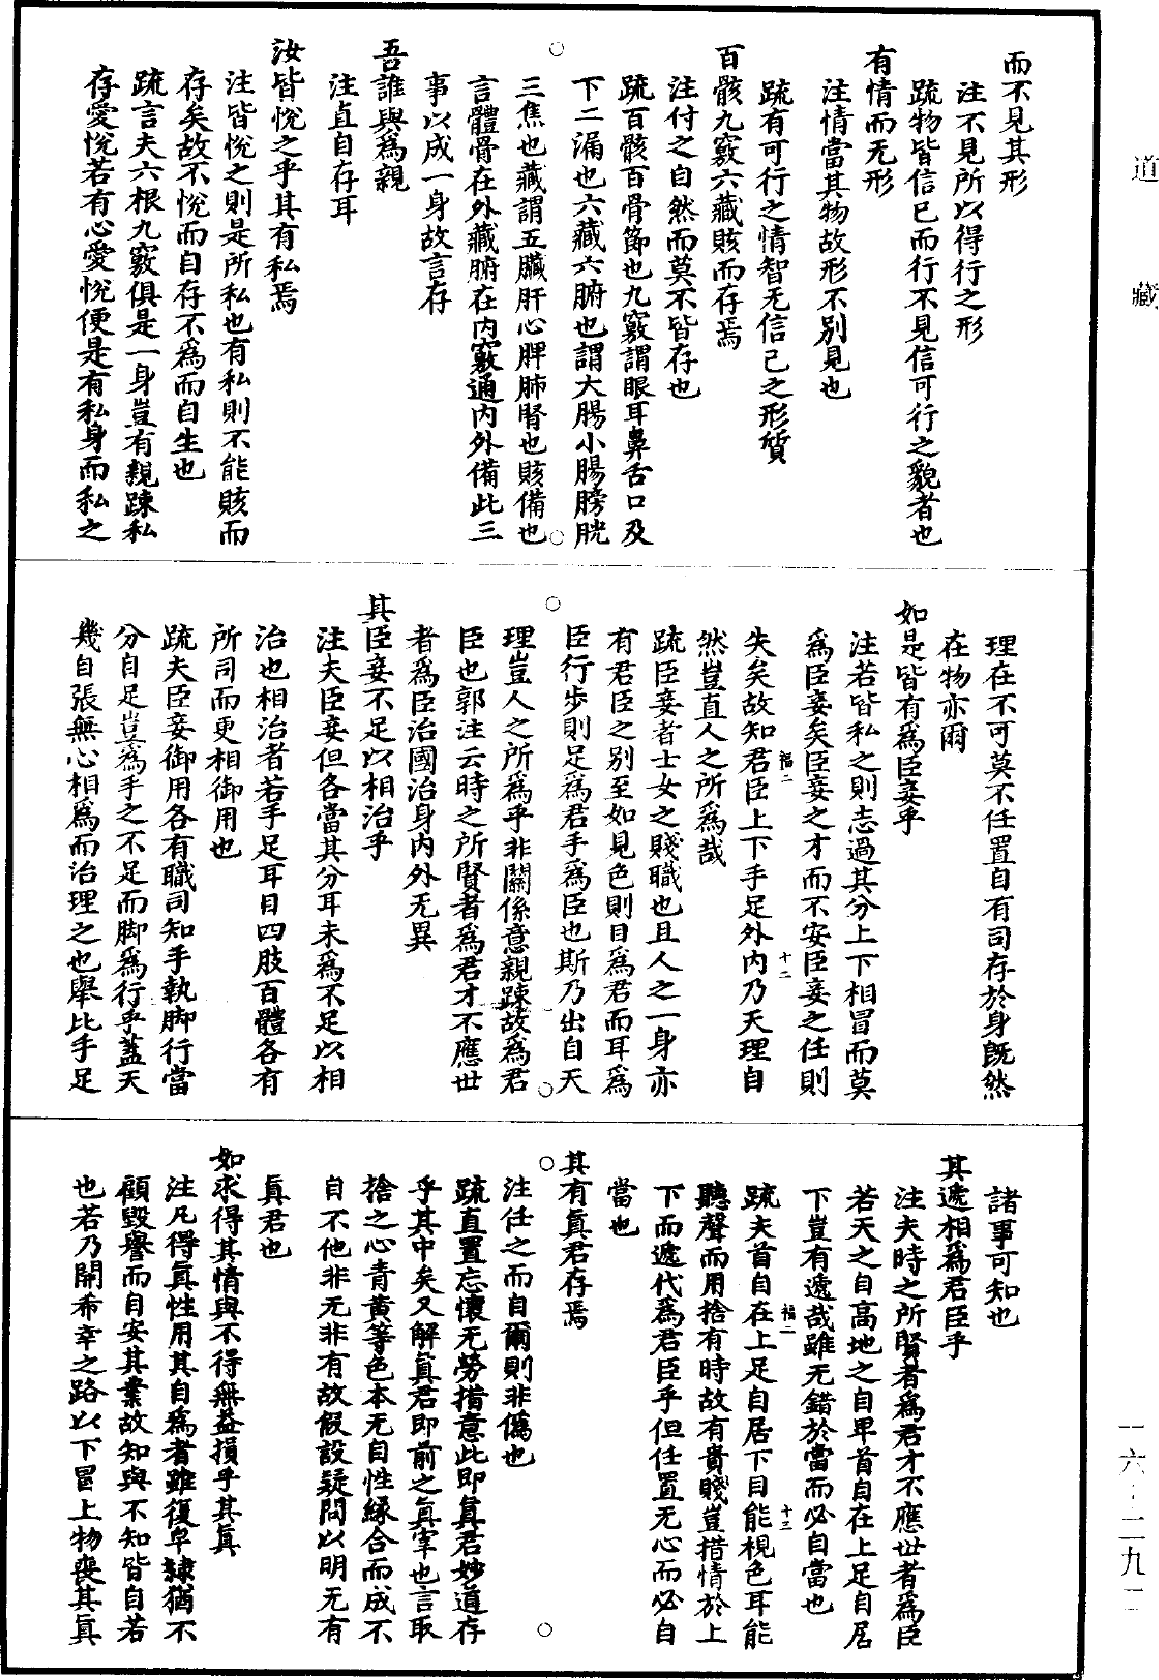 道藏
而不見其形
注不見所以得行之形
疏物皆信已而行不見信可行之貌者也
有情而无形
注情當其物故形不別見也
疏有可行之情智无信己之形質
百骸九竅六藏賅而存焉
注付之自然而莫不皆存也
疏百骸百骨節也九竅謂眼耳鼻舌口及
下二漏也六藏六腑也謂大腸小腸膀胱
三焦也藏謂五臟肝心脾肺腎也賅備也
言體骨在外藏腑在內竅通內外備此三
事以成一身故言存
吾誰與爲親
注直自存耳
汝皆悅之乎其有私焉
注皆悅之則是所私也有私則不能賅而
存矣故不悅而自存不爲而自生也
疏言夫六根九竅俱是一身豈有親踈私
存愛悅若有心愛悅便是有私身而私之
理在不可莫不任置自有司存於身既然
在物亦爾
如是皆有爲臣妾乎
注若皆私之則志過其分上下相冒而莫
爲臣妾矣臣妾之才而不安臣妾之任則
失矣故知君臣上下手足外內乃天理自
福二
十二
然豈直人之所爲哉
疏臣妾者士女之賤職也且人之一身亦
有君臣之別至如見色則目爲君而耳爲
臣行步則足爲君手爲臣也斯乃出自天
理豈人之所爲乎非關係意親踈故爲君
臣也郭注云時之所賢者爲君才不應世
者爲臣治國治身內外无異
其臣妾不足以相治乎
注夫臣妾但各當其分耳未爲不足以相
治也相治者若手足耳目四肢百體各有
所司而更相御用也
疏夫臣妾御用各有職司知手執脚行當
分自足豈爲手之不足而脚爲行乎蓋天
幾自張無心相爲而治理之也舉比手足
諸事可知也
其遞相爲君臣乎
注夫時之所賢者爲君才不應世者爲臣
若天之自高地之自卑首自在上足自居
下豈有遞哉雖无錯於當而必自當也
福二
十三
疏夫首自在上足自居下目能視色耳能
聽聲而用捨有時故有貴賤豈措情於上
下而遞代爲君臣乎但任置无心而必自
當也
其有眞君存焉
注任之而自爾則非僞也
疏直置忘懷无勞措意此即眞君妙道存
乎其中矣又解眞君即前之眞宰也言取
捨之心青黃等色本无自性緣合而成不
自不他非无非有故假設疑問以明无有
眞君也
如求得其情與不得無益損乎其眞
注凡得眞性用其自爲者雖復皁隸猶不
顧毀譽而自安其業故知與不知皆自若
也若乃開希幸之路以下冒上物喪其眞
一六-二九二